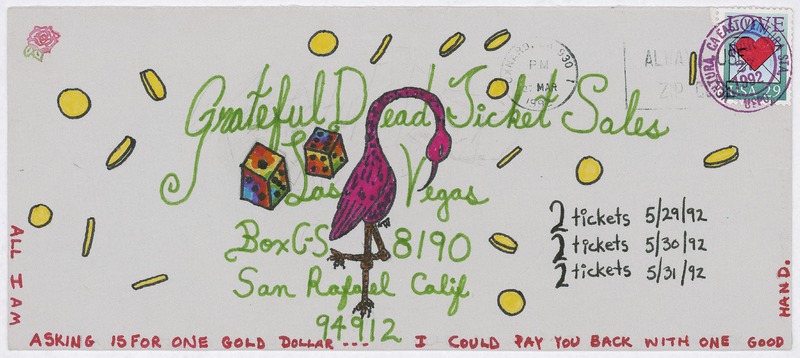 Grateful Dead Ticket Sales
Las Vegas
Box C-S 8190
San Rafael Calif
94912
2 tickets 5/29/92
2 tickets 5/30/92
2 tickets 5/31/92
ALL I AM
ASKING IS FOR ONE GOLD DOLLAR... I COULD PAY YOU BACK WITH ONE GOOD
HAND.
LOVE
USA 29
PM
MAR
VENTURA, CA EAST VENTURA STA
1992
USPO
USE
ZIP